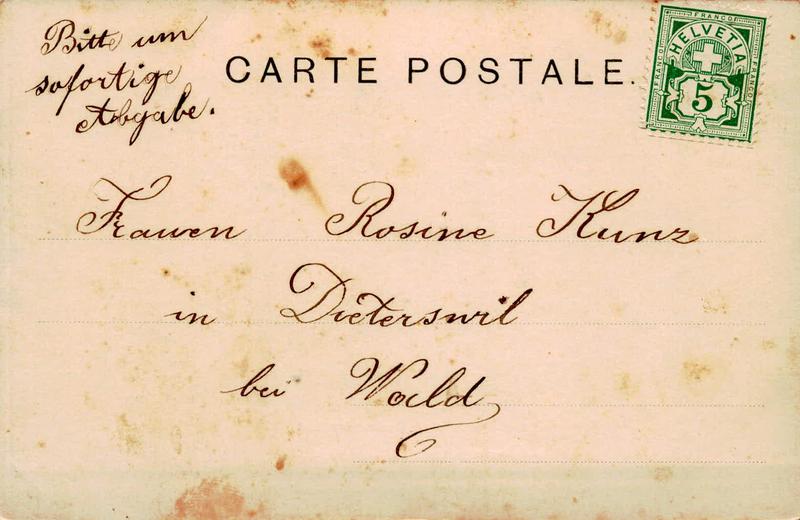 Bitte um
sofortige
Abgabe.
CARTE POSTALE.
FRANCO
HELVETIA
FRANCO
FRANCO
5
Frauen Rosine Kunz
in Dieterswil
bei Wald